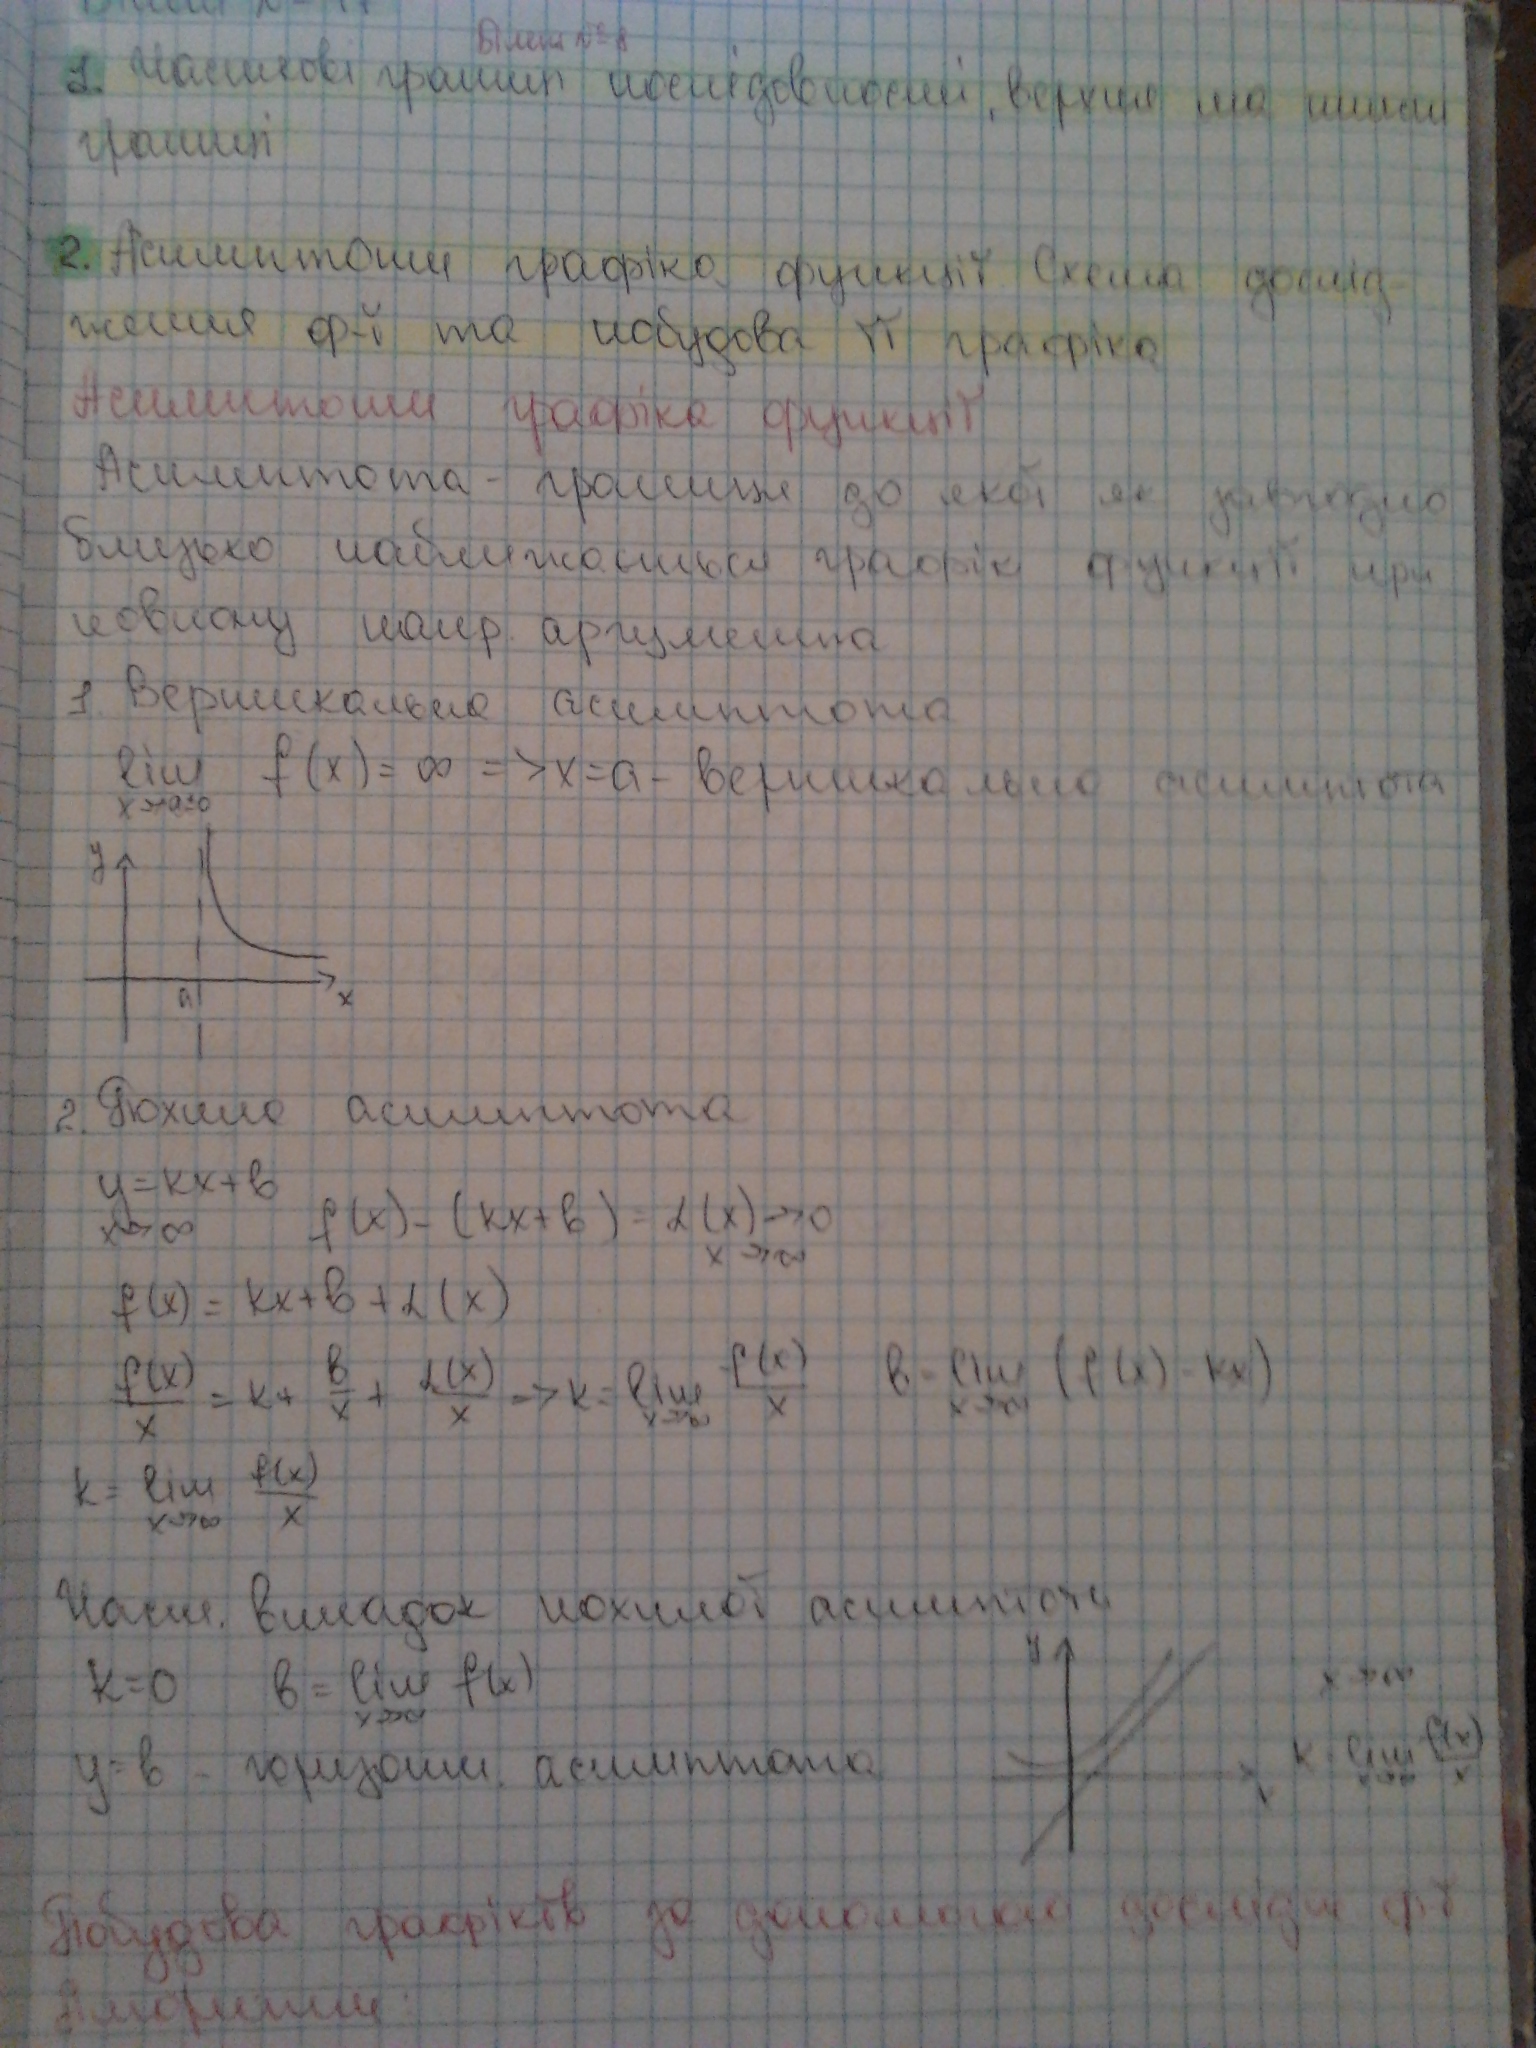 Білет №8
1. Часткові границі послідовностей, верхня та нижня
границі
2. Асимптоти графіка функції. Схема дослід-
ження ф-ї та побудова її графіка
Асимптоти графіка функції
Асимптота - границя до якої як завгодно
близько наближається графік функції при
певному напр. аргумента
1. Вертикальна асимптота
lim f(x) = ∞ => x=a - вертикальна асимптота
x→a±0
y
a
x
2. Похила асимптота
y=kx+b
x→∞
f(x) - (kx+b) = α(x)→0
x→∞
f(x) = kx+b+α(x)
f(x)/x = k + b/x + α(x)/x => k = lim x→∞ f(x)/x b = lim x→∞ (f(x) - kx)
k = lim x→∞ f(x)/x
Част. випадок похилої асимптоти
k=0 b = lim x→∞ f(x)
y=b - горизонт. асимптота
y
x
x→∞
k = lim x→∞ f(x)/x
Побудова графіків за допомогою дослідж ф-ї
Алгоритм: